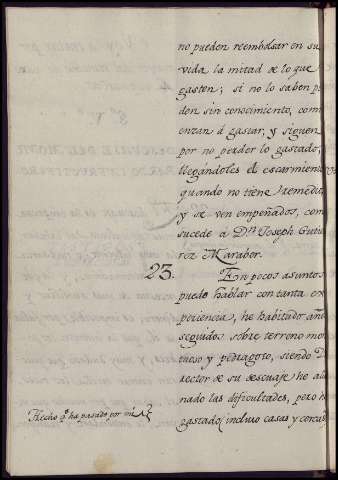 no pueden reembolsar en su
vida la mitad de lo que
gasten; si no lo saben pi
den sin conocimiento, com
enzan á gastar, y siguen
por no perder lo gastado;
llegándoles el escarmiento
quando no tiene remedio,
y se ven empeñados, com
sucede a Dn Joseph Gutie
rrez Marabor.
23. En pocos asuntos
puedo hablar con tanta ex
periencia, he habitado años
seguidos sobre terreno mon
tuoso y pedragoso, siendo Di
rector de su descuaje he alla
nado las dificultades, pero he
gastado (incluso casas y cercas
Hecho qe ha pasado por mi